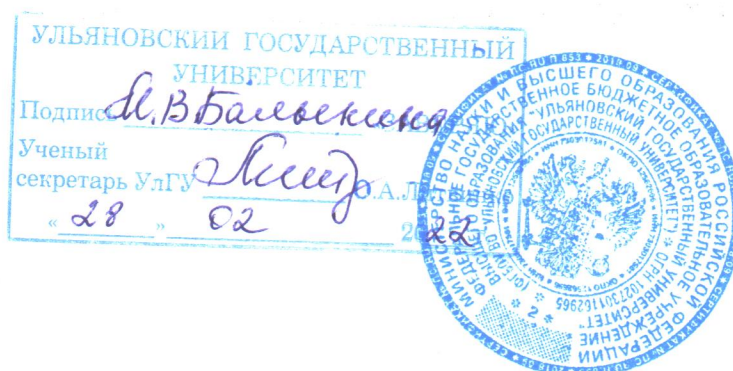 УЛЬЯНОВСКИЙ ГОСУДАРСТВЕННЫЙ
УНИВЕРСИТЕТ
Подпись М.В Балыкина
Ученый
секретарь УлГУ О.А.
« 28 » 02 2022
МИНИСТЕРСТВО НАУКИ И ВЫСШЕГО ОБРАЗОВАНИЯ РОССИЙСКОЙ ФЕДЕРАЦИИ
ФЕДЕРАЛЬНОЕ ГОСУДАРСТВЕННОЕ БЮДЖЕТНОЕ ОБРАЗОВАТЕЛЬНОЕ УЧРЕЖДЕНИЕ
ВЫСШЕГО ОБРАЗОВАНИЯ "УЛЬЯНОВСКИЙ ГОСУДАРСТВЕННЫЙ УНИВЕРСИТЕТ"
(ФГБОУ ВО УЛЬЯНОВСКИЙ ГОСУДАРСТВЕННЫЙ УНИВЕРСИТЕТ) * ОГРН 1027301162965
* 2 *